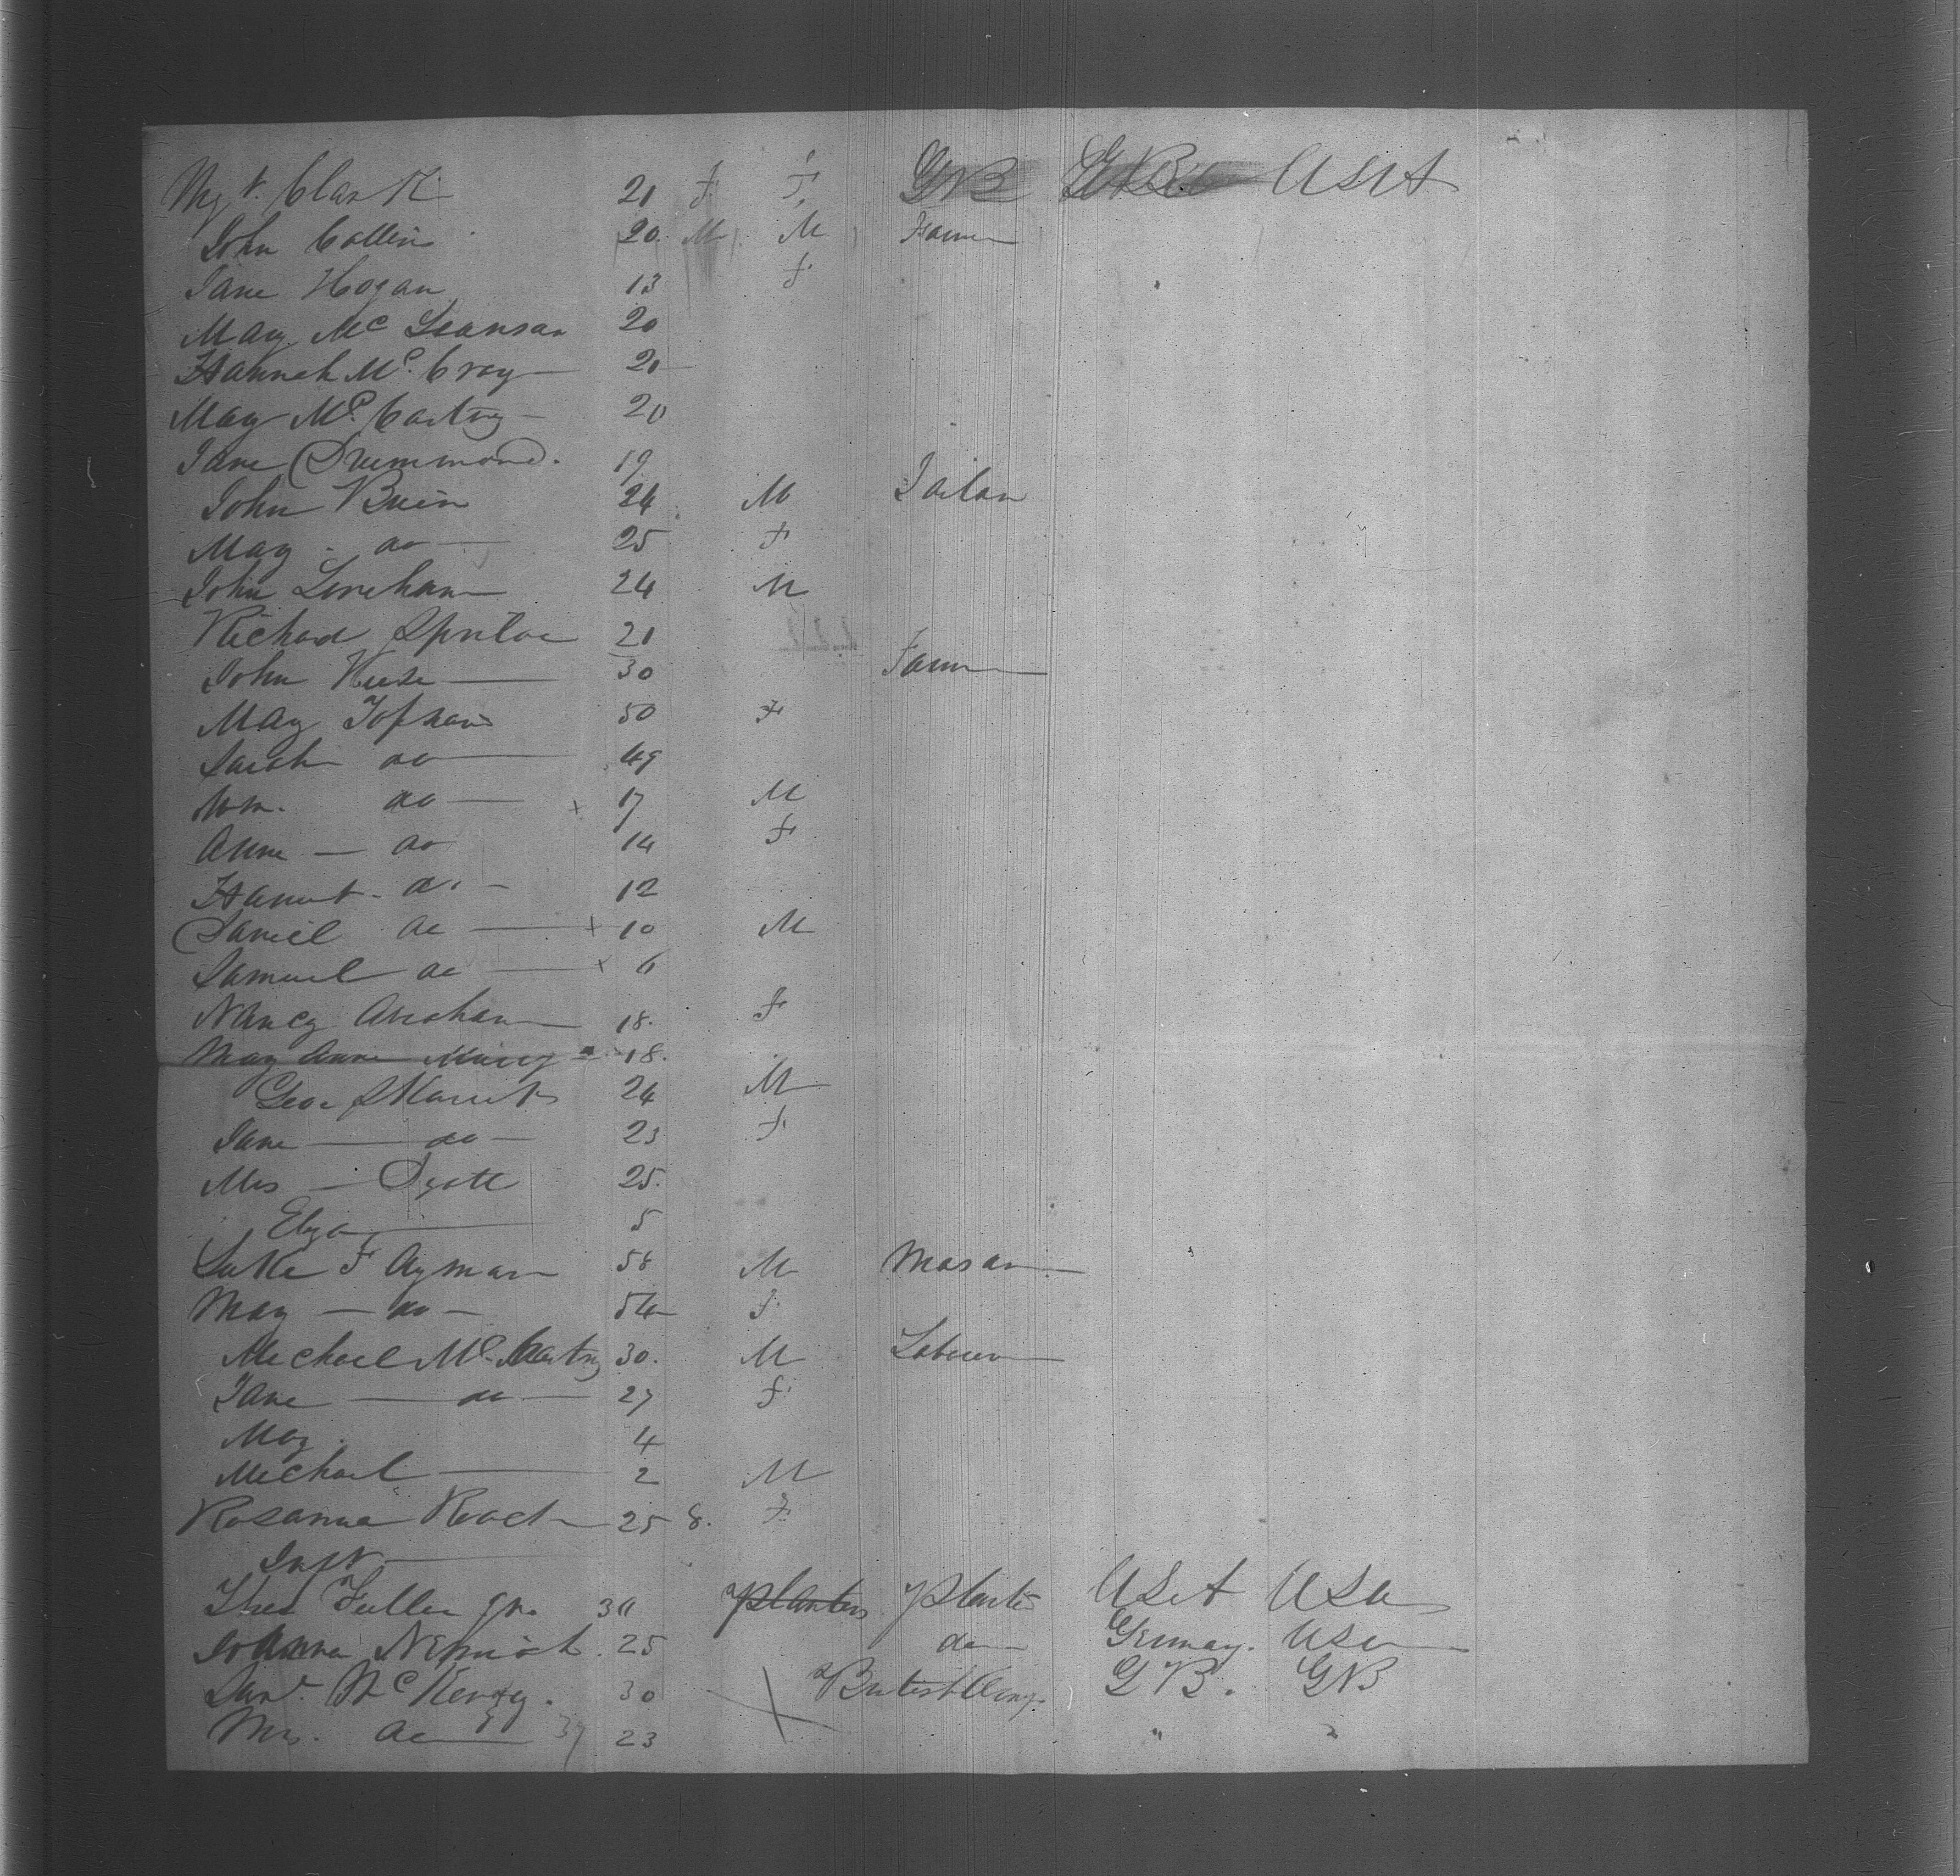 Mgt. Clark 21 F F GB GB USA
John Collins 20 M M Farmer
Jane Hogan 13 F
Mary Mc 20
Hannah Mc. Cray 20
Mary Mc. Cartny 20
Jane Drummond. 19
John 24 M Tailor
Mary do 25 F
John Lineham 24 M
Richard 21
John 30 Farmer
Mary 50 F
Sarah do 49
Wm. do x 17 M
Anne do 14 F
do 12
Daniel do x 10 M
Samuel do x 6
Nancy Abraham 18. F
Mary Anne 18.
Geo 24 M
Jane do 23 F
Mrs 25.
Eliza 5
Luke F Ayman 58 M Mason
Mary do 54 F
Michael Mc. Cartny 30. M Laborer
Jane do 27 F
Mary 4
Michael 2 M
Rosanna Roach 25 8. F
Inft
Thos Fuller Jr. 30 Planters Planter USA USA
Johanna 25 do Germany. USA
McKenzy. 30 GB. GB
Mrs. do 39 23 " "